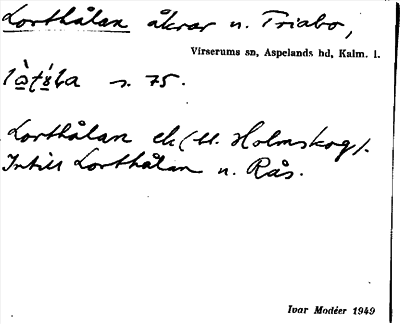 Lorthålan åkrar n. Triabo,
Virserums sn, Aspelands hd, Kalm. l.
s. 75.
Lorthålan ek (bl. Holmskog).
Intill Lorthålan n. Rås.
Ivar Modéer 1949